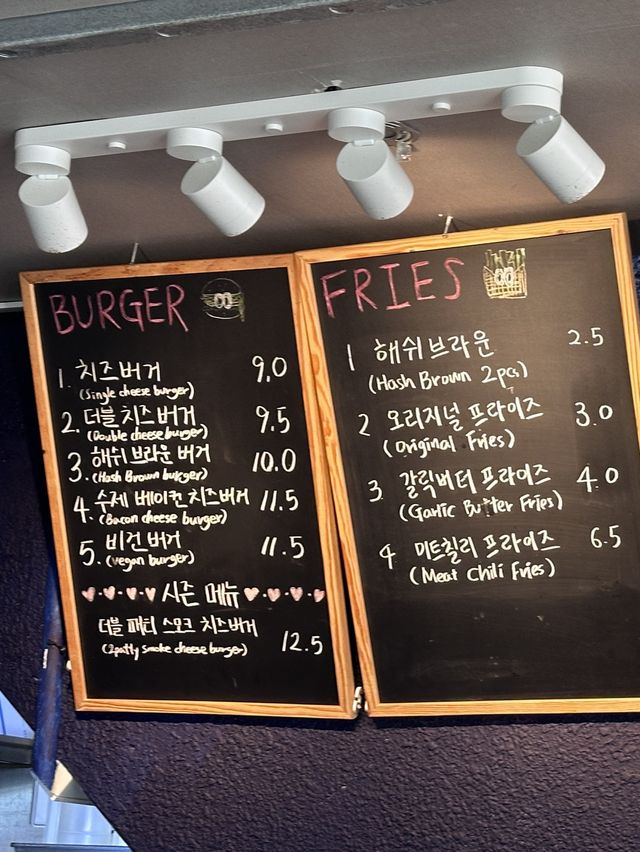 BURGER
1. 치즈버거 9.0
(Single cheese burger)
2. 더블 치즈버거 9.5
(Double cheese burger)
3. 해쉬 브라운 버거 10.0
(Hash Brown burger)
4. 수제 베이컨 치즈버거 11.5
(Bacon cheese burger)
5. 비건 버거 11.5
(vegan burger)
시즌 메뉴
더블 패티 스모크 치즈버거 12.5
(2patty smoke cheese burger)
FRIES
1 해쉬브라운 2.5
(Hash Brown 2pcs)
2 오리지널 프라이즈 3.0
(Original Fries)
3. 갈릭버터 프라이즈 4.0
(Garlic Butter Fries)
4 미트칠리 프라이즈 6.5
(Meat Chili Fries)